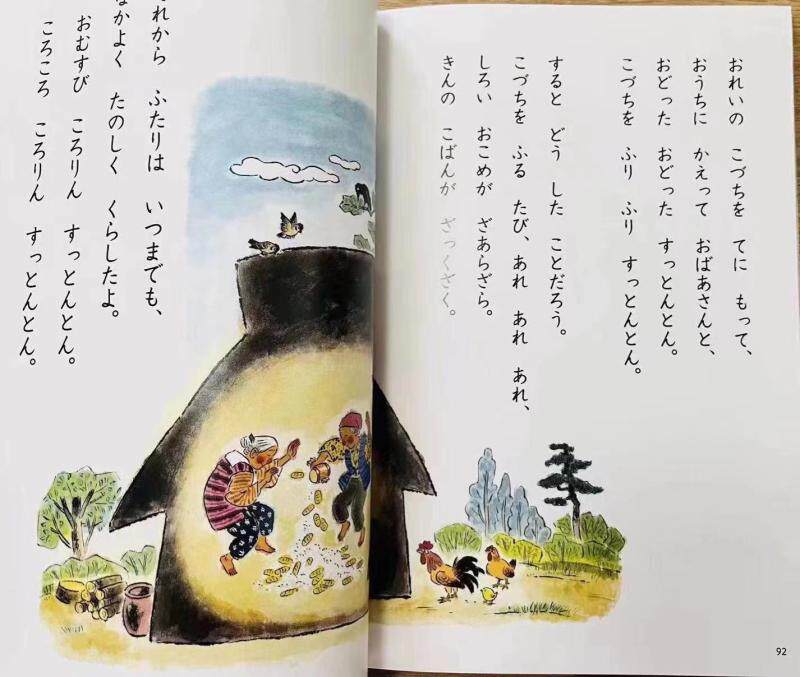 おれいの こづちを てに もって、
おうちに かえって おばあさんと、
おどった おどった すっとんとん。
こづちを ふり ふり すっとんとん。
すると どう した ことだろう。
こづちを ふる たび、あれ あれ あれ、
しろい おこめが ざあらざら。
きんの こばんが ざっくざく。
れから ふたりは いつまでも、
かよく たのしく くらしたよ。
おむすび ころりん すっとんとん。
ころころ ころりん すっとんとん。
92